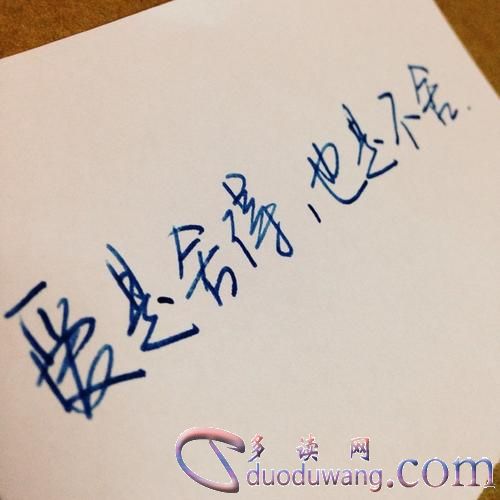 爱是舍得,也是不舍.
多读网
duoduwang.com